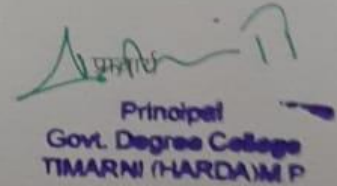 Principal
Govt. Degree College
TIMARNI (HARDA) M P